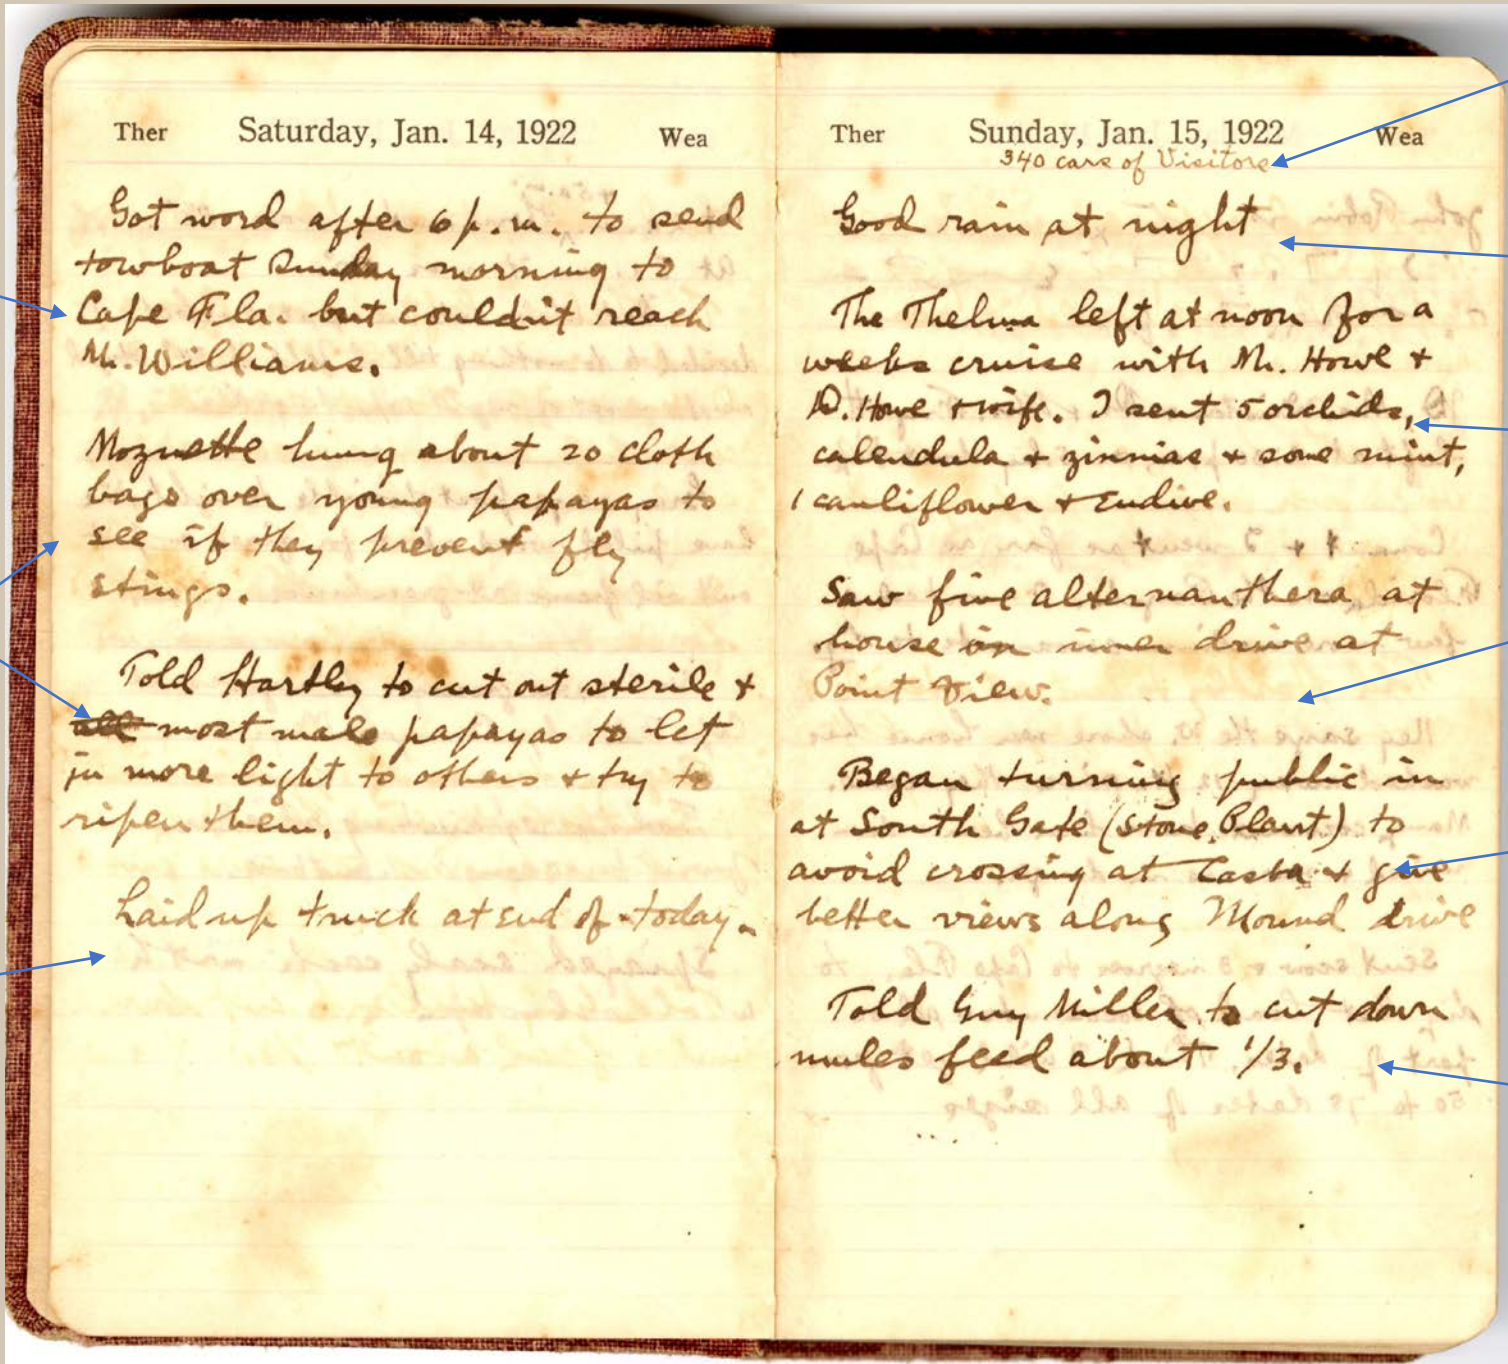 Ther Saturday, Jan. 14, 1922 Wea
Got word after 6 p.m. to send
towboat Sunday morning to
Cape Fla. but couldn't reach
Mr. Williams.
Moznette hung about 20 cloth
bags over young papayas to
see if they prevent fly
stings.
Told Hartley to cut out sterile +
all most male papayas to let
in more light to others + try to
ripen them.
Laid up truck at end of today.
Ther Sunday, Jan. 15, 1922 Wea
340 cars of Visitors
Good rain at night
The Thelma left at noon for a
weeks cruise with Mr. Howe +
D. Howe + wife. I sent 5 orchids,
calendula + zinnias + some mint,
1 cauliflower + endive.
Saw fine alternanthera at
house on inner drive at
Point View.
Began turning public in
at South Gate (Stone Plant) to
avoid crossing at Casba + give
better views along Mound drive
Told Guy Miller to cut down
mules feed about 1/3.